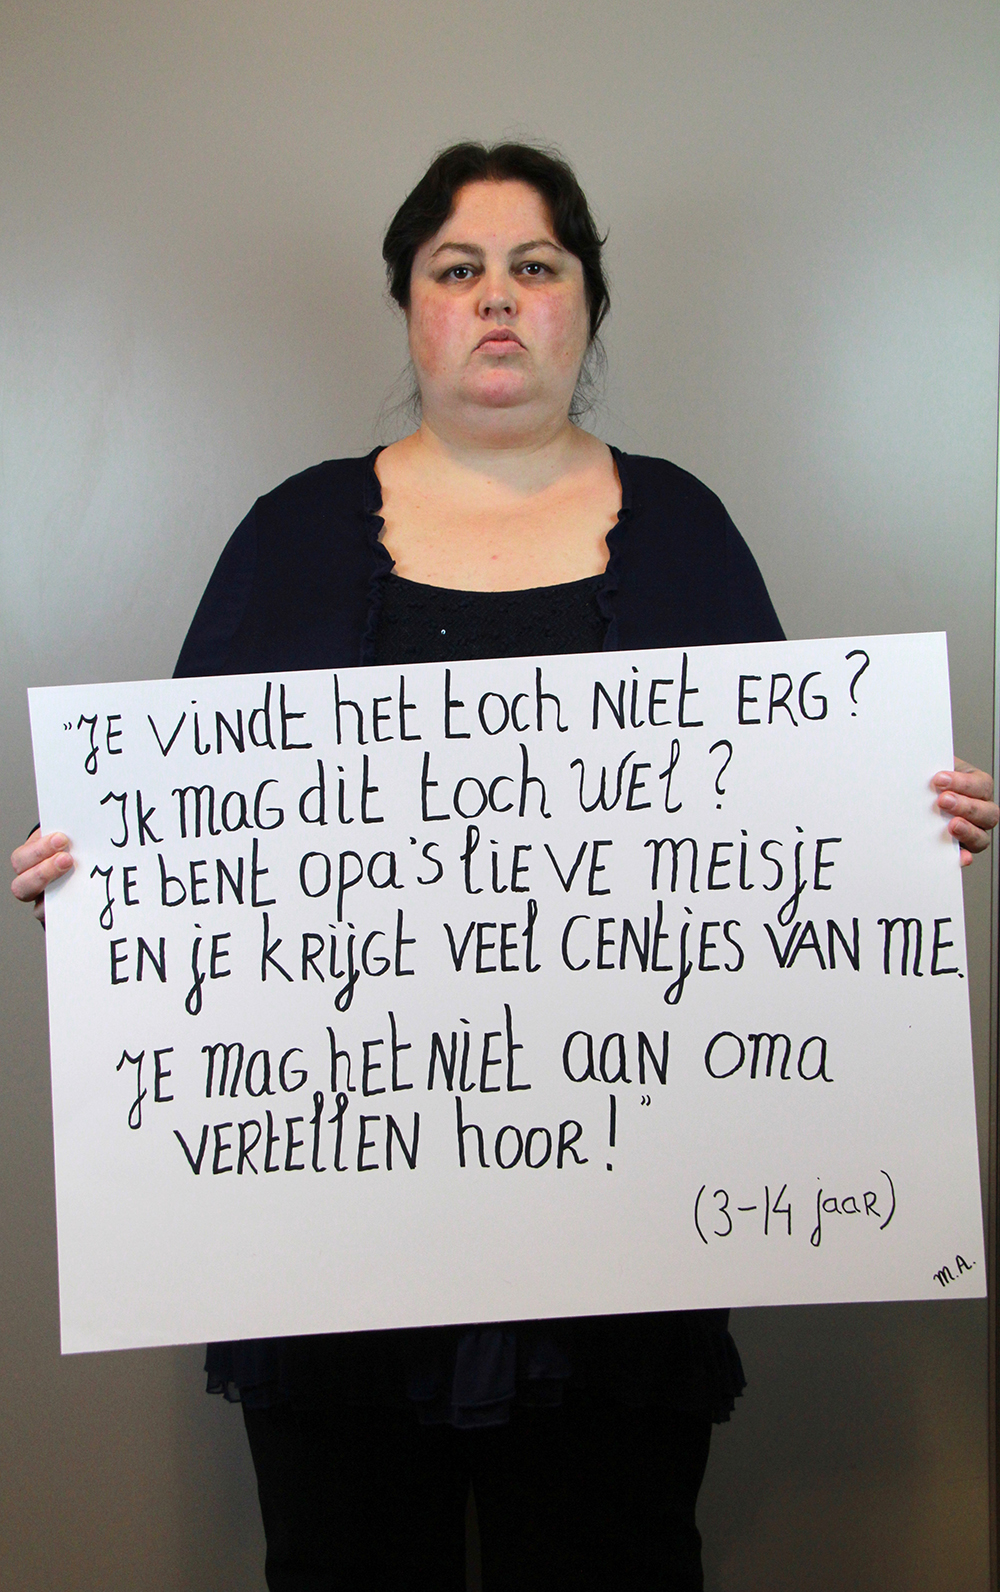 "Je vindt het toch niet erg?
Ik mag dit toch wel?
Je bent opa's lieve meisje
en je krijgt veel centjes van me.
Je mag het niet aan oma
vertellen hoor!"
(3-14 jaar)
M.A.